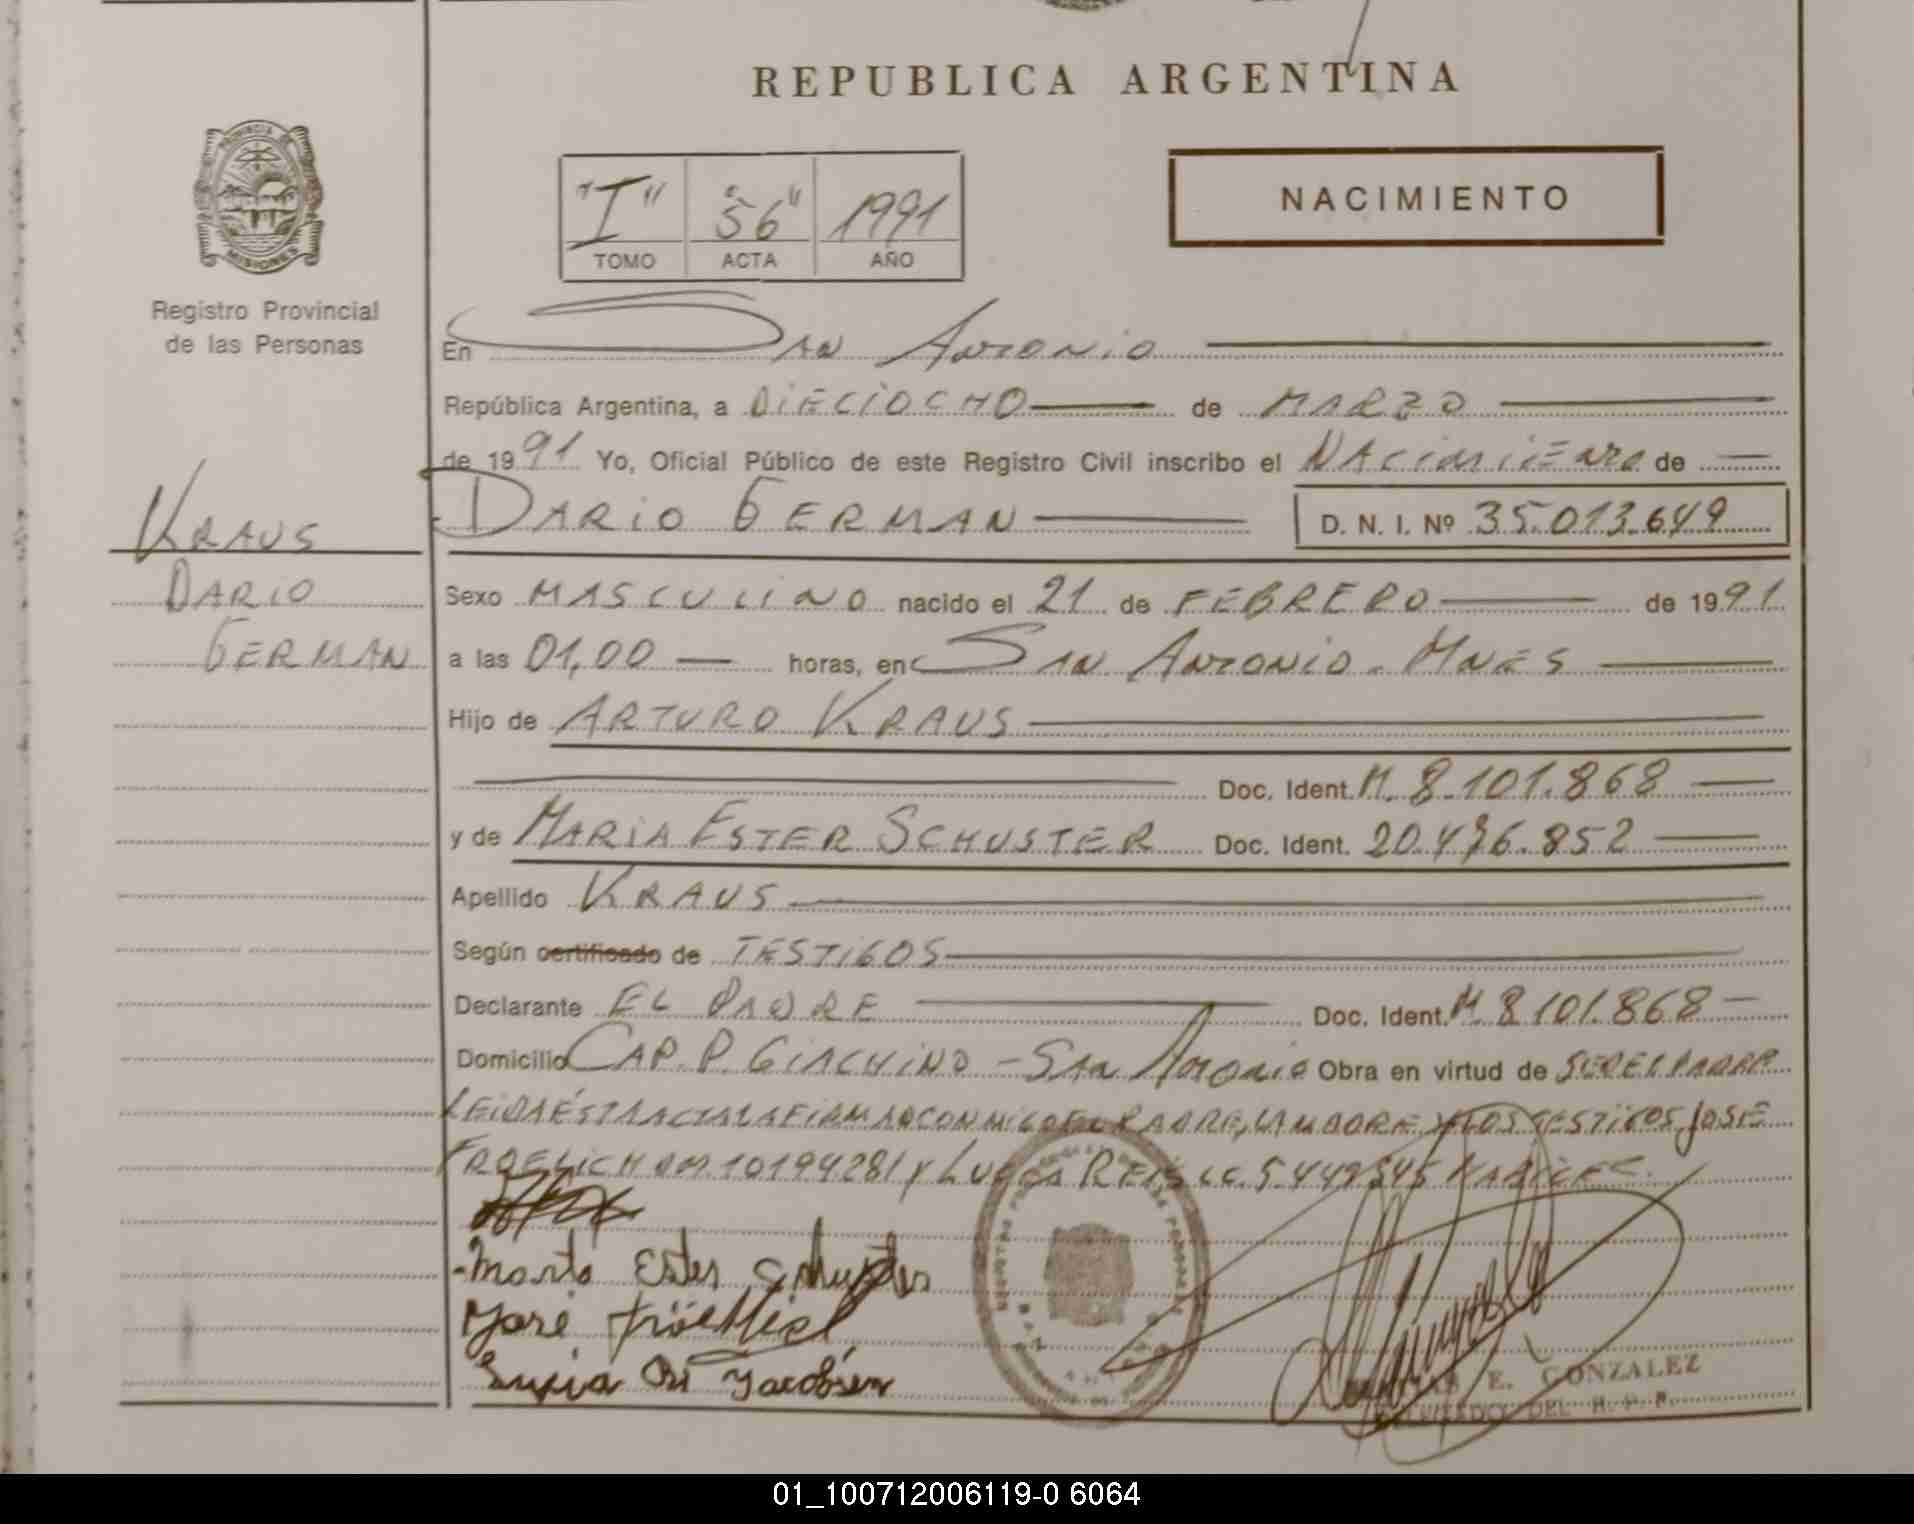 REPUBLICA ARGENTINA
PROVINCIA DE
MISIONES
Registro Provincial
de las Personas
"I" "56" 1991
TOMO ACTA AÑO
NACIMIENTO
En San Antonio
República Argentina, a DIECIOCHO de MARZO
de 1991 Yo, Oficial Público de este Registro Civil inscribo el NACIMIENTO de
DARIO GERMAN D. N. I. Nº 35.013.649
KRAUS
DARIO
GERMAN
Sexo MASCULINO nacido el 21 de FEBRERO de 1991
a las 01,00 horas, en SAN ANTONIO - MNES
Hijo de ARTURO KRAUS
Doc. Ident. M. 8.101.868
y de MARIA ESTER SCHUSTER Doc. Ident. 20.476.852
Apellido KRAUS
Según certificado de TESTIGOS
Declarante EL PADRE Doc. Ident. M. 8.101.868
Domicilio CAP. P. GIACHINO - SAN ANTONIO Obra en virtud de SER EL PADRE
LEIDA ÉSTA ACTA LA FIRMAN CONMIGO EL PADRE, LA MADRE Y LOS TESTIGOS JOSÉ
FROELICH DNI. 10194281 Y REIS LC. 5.449545
Maria Ester Schuster
José Fröehlich
Jacobsen
E. GONZALEZ
DEL R. P. P.
01_100712006119-0 6064